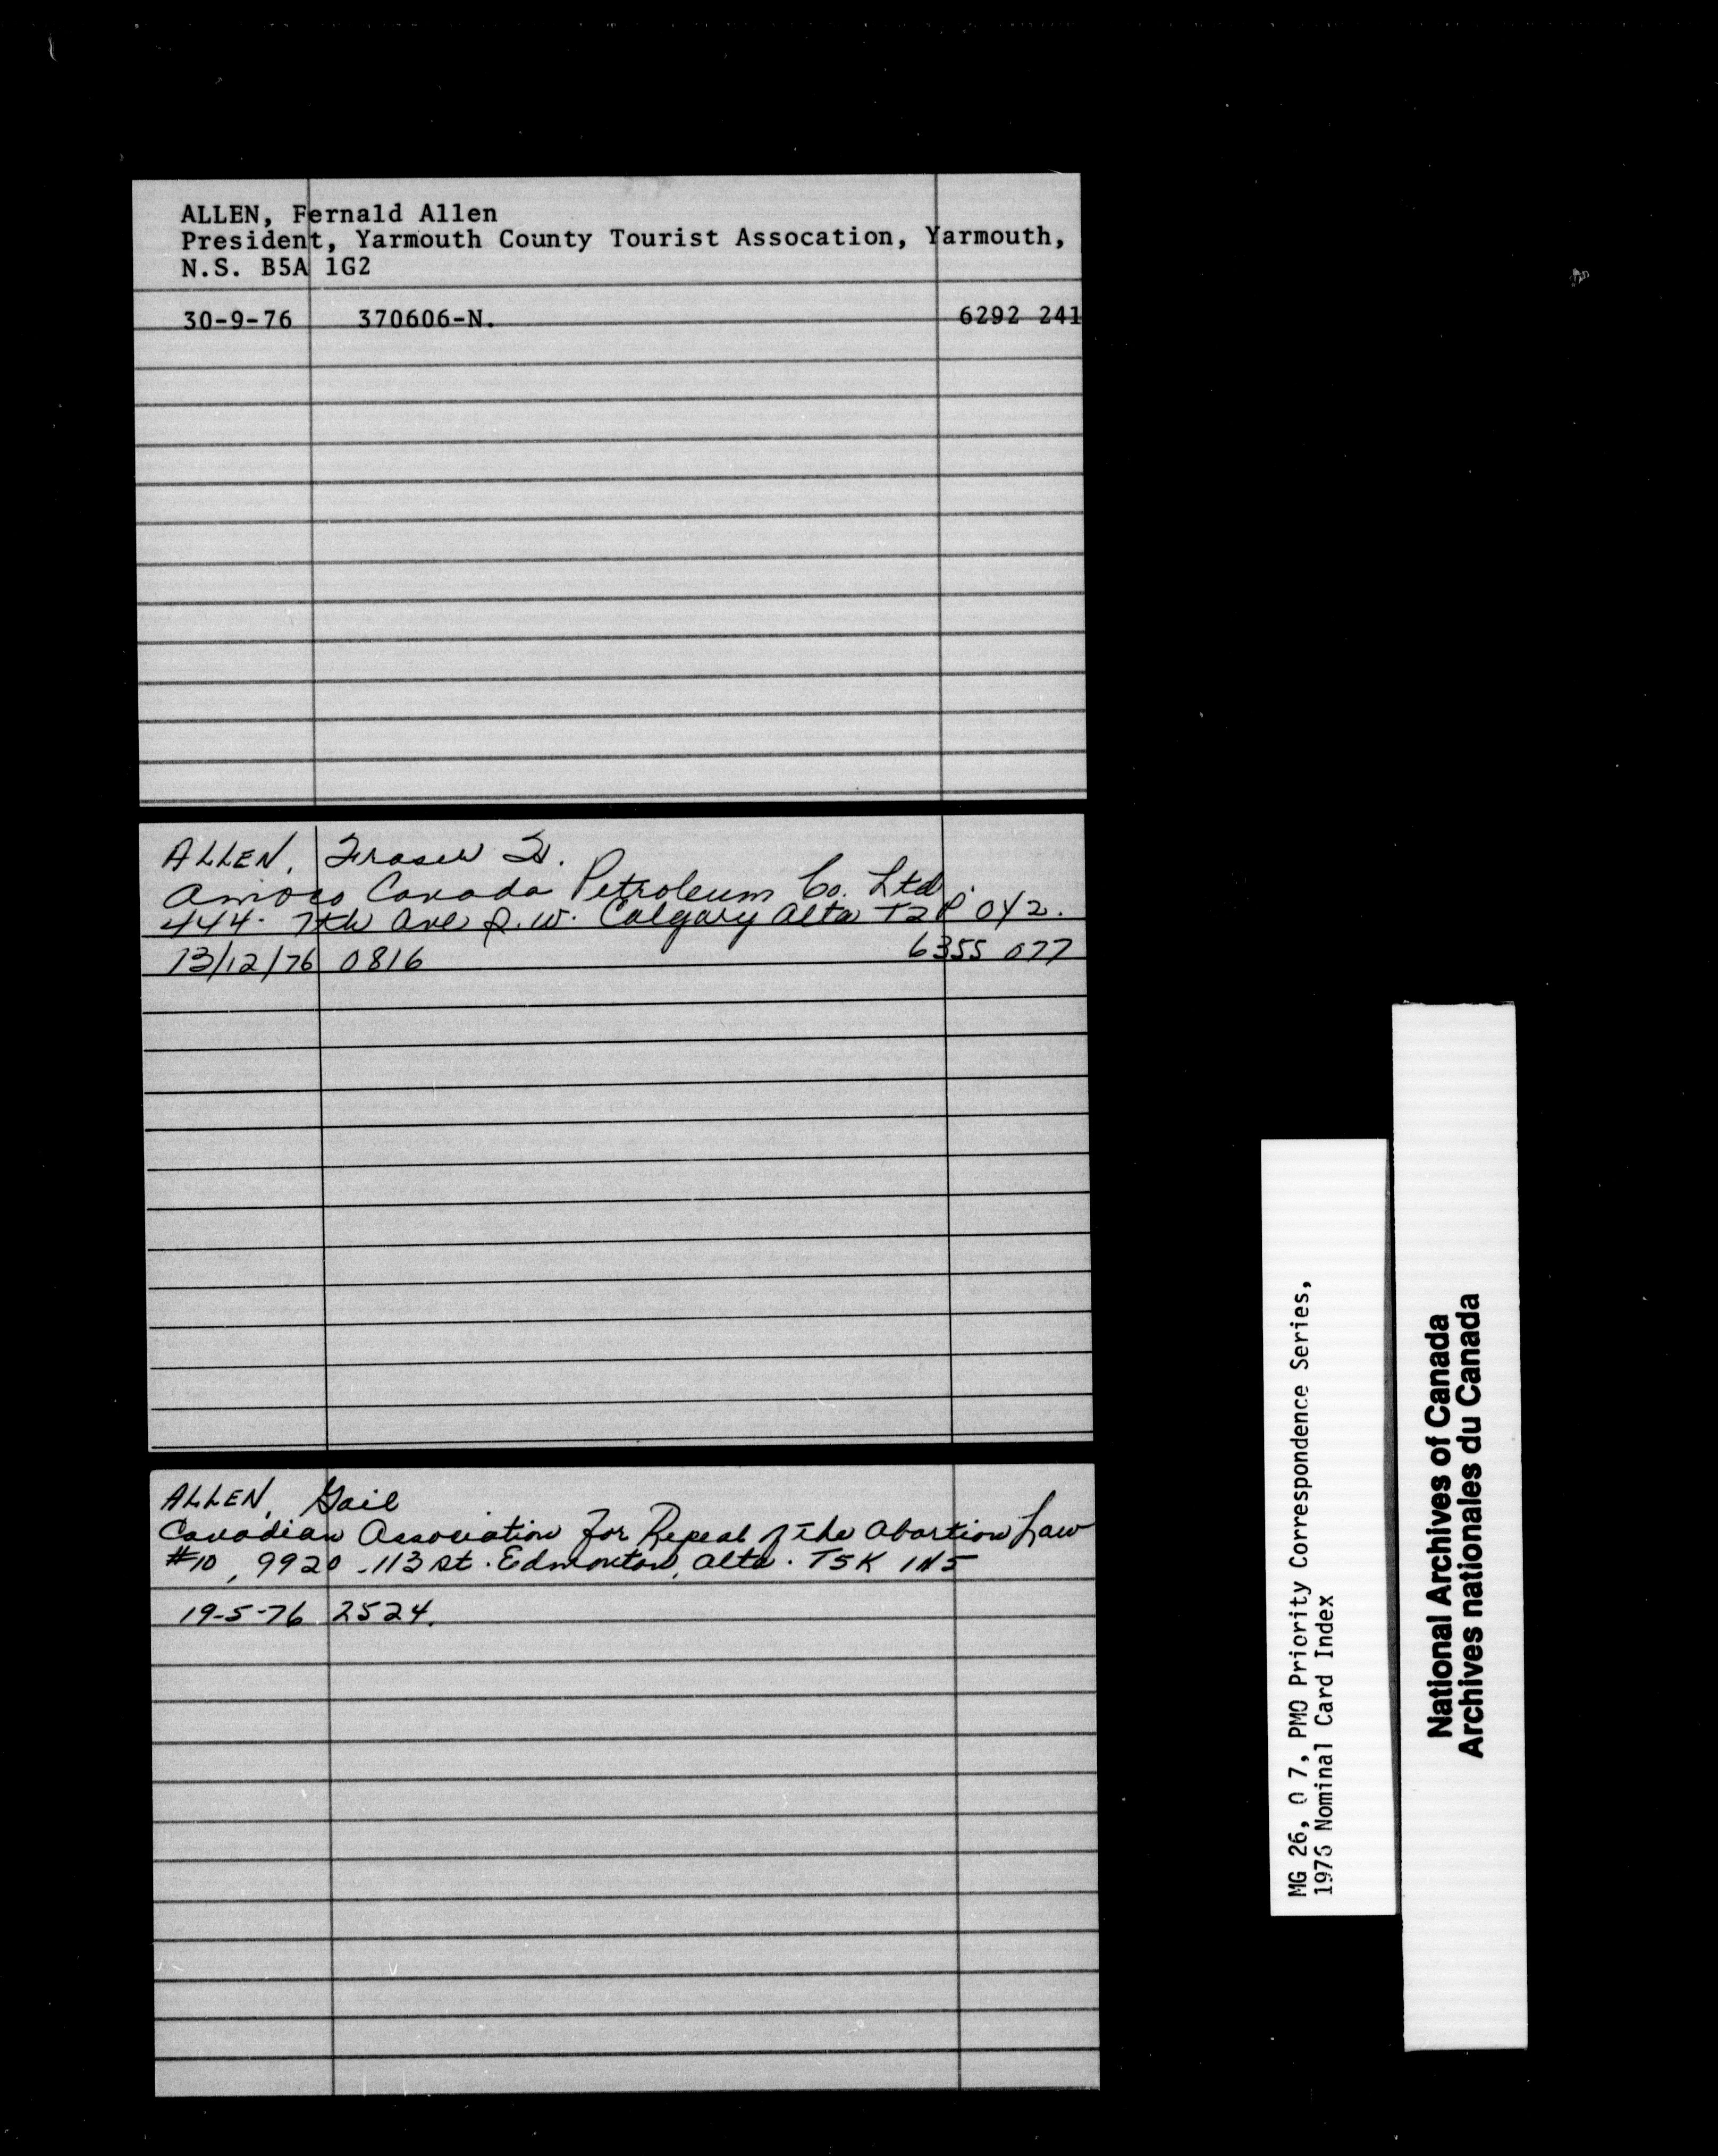 ALLEN, Fernald Allen
President, Yarmouth County Tourist Assocation, Yarmouth,
N.S. B5A 1G2
30-9-76 370606-N. 6292 241
ALLEN, Fraser
Amoco Canada Petroleum Co. Ltd.
444- 7th Ave S.W. Calgary Alta T2P 0Y2.
13/12/76 0816 6355 077
ALLEN, Gail
Canadian Association for Repeal of the Abortion Law
#10, 9920 - 113 St. Edmonton, Alta. T5K 1N5
19-5-76 2524.
MG 26, O 7, PMO Priority Correspondence Series,
1976 Nominal Card Index
National Archives of Canada
Archives nationales du Canada